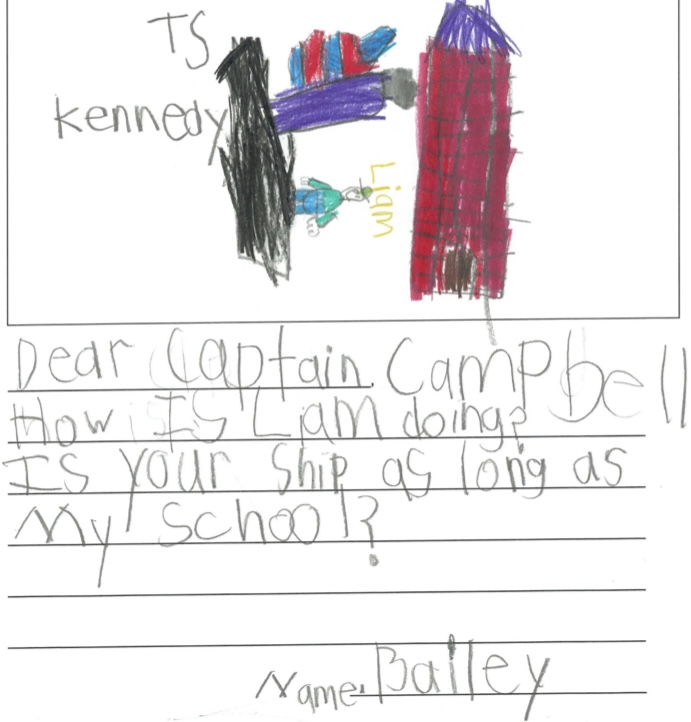 TS
Kennedy
Liam
Dear Captain Campbell
How IS Liam doing?
IS your Ship as long as
My School?
Name: Bailey